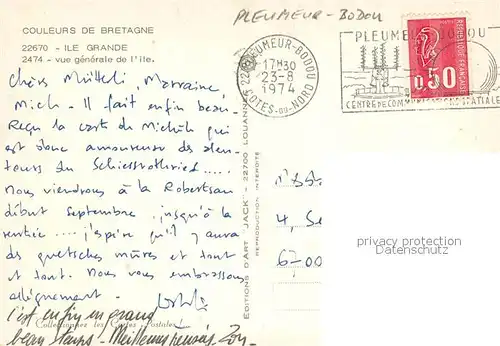 PLEUMEUR-BODOU
COULEURS DE BRETAGNE
22670 - ILE GRANDE
2474 - vue générale de l'île.
22 PLEUMEUR-BODOU
17H30
23-8
1974
COTES-DU-NORD
PLEUMEUR BODOU
CENTRE DE COMMUNICATIONS SPATIALES
REPUBLIQUE FRANCAISE
0,50
Chers Mütteli, Marraine,
Mich - Il fait enfin beau -
Reçu la carte de Michèle qui
est donc amoureuse des alen-
teurs du Schiessrothried....
Nous viendrons à la Robertsau
début septembre, jusqu'à la
rentrée.... j'espère qu'il y aura
des quetsches mûres et tout
et tout. Nous vous embrassons
allègrement.
c'est enfin un grand
beau temps - Meilleures pensées,
Collectionnez les Cartes Postales !
EDITIONS D'ART "JACK" - 22700 LOUANNEC
REPRODUCTION INTERDITE
4,
67-00
privacy protection
Datenschutz